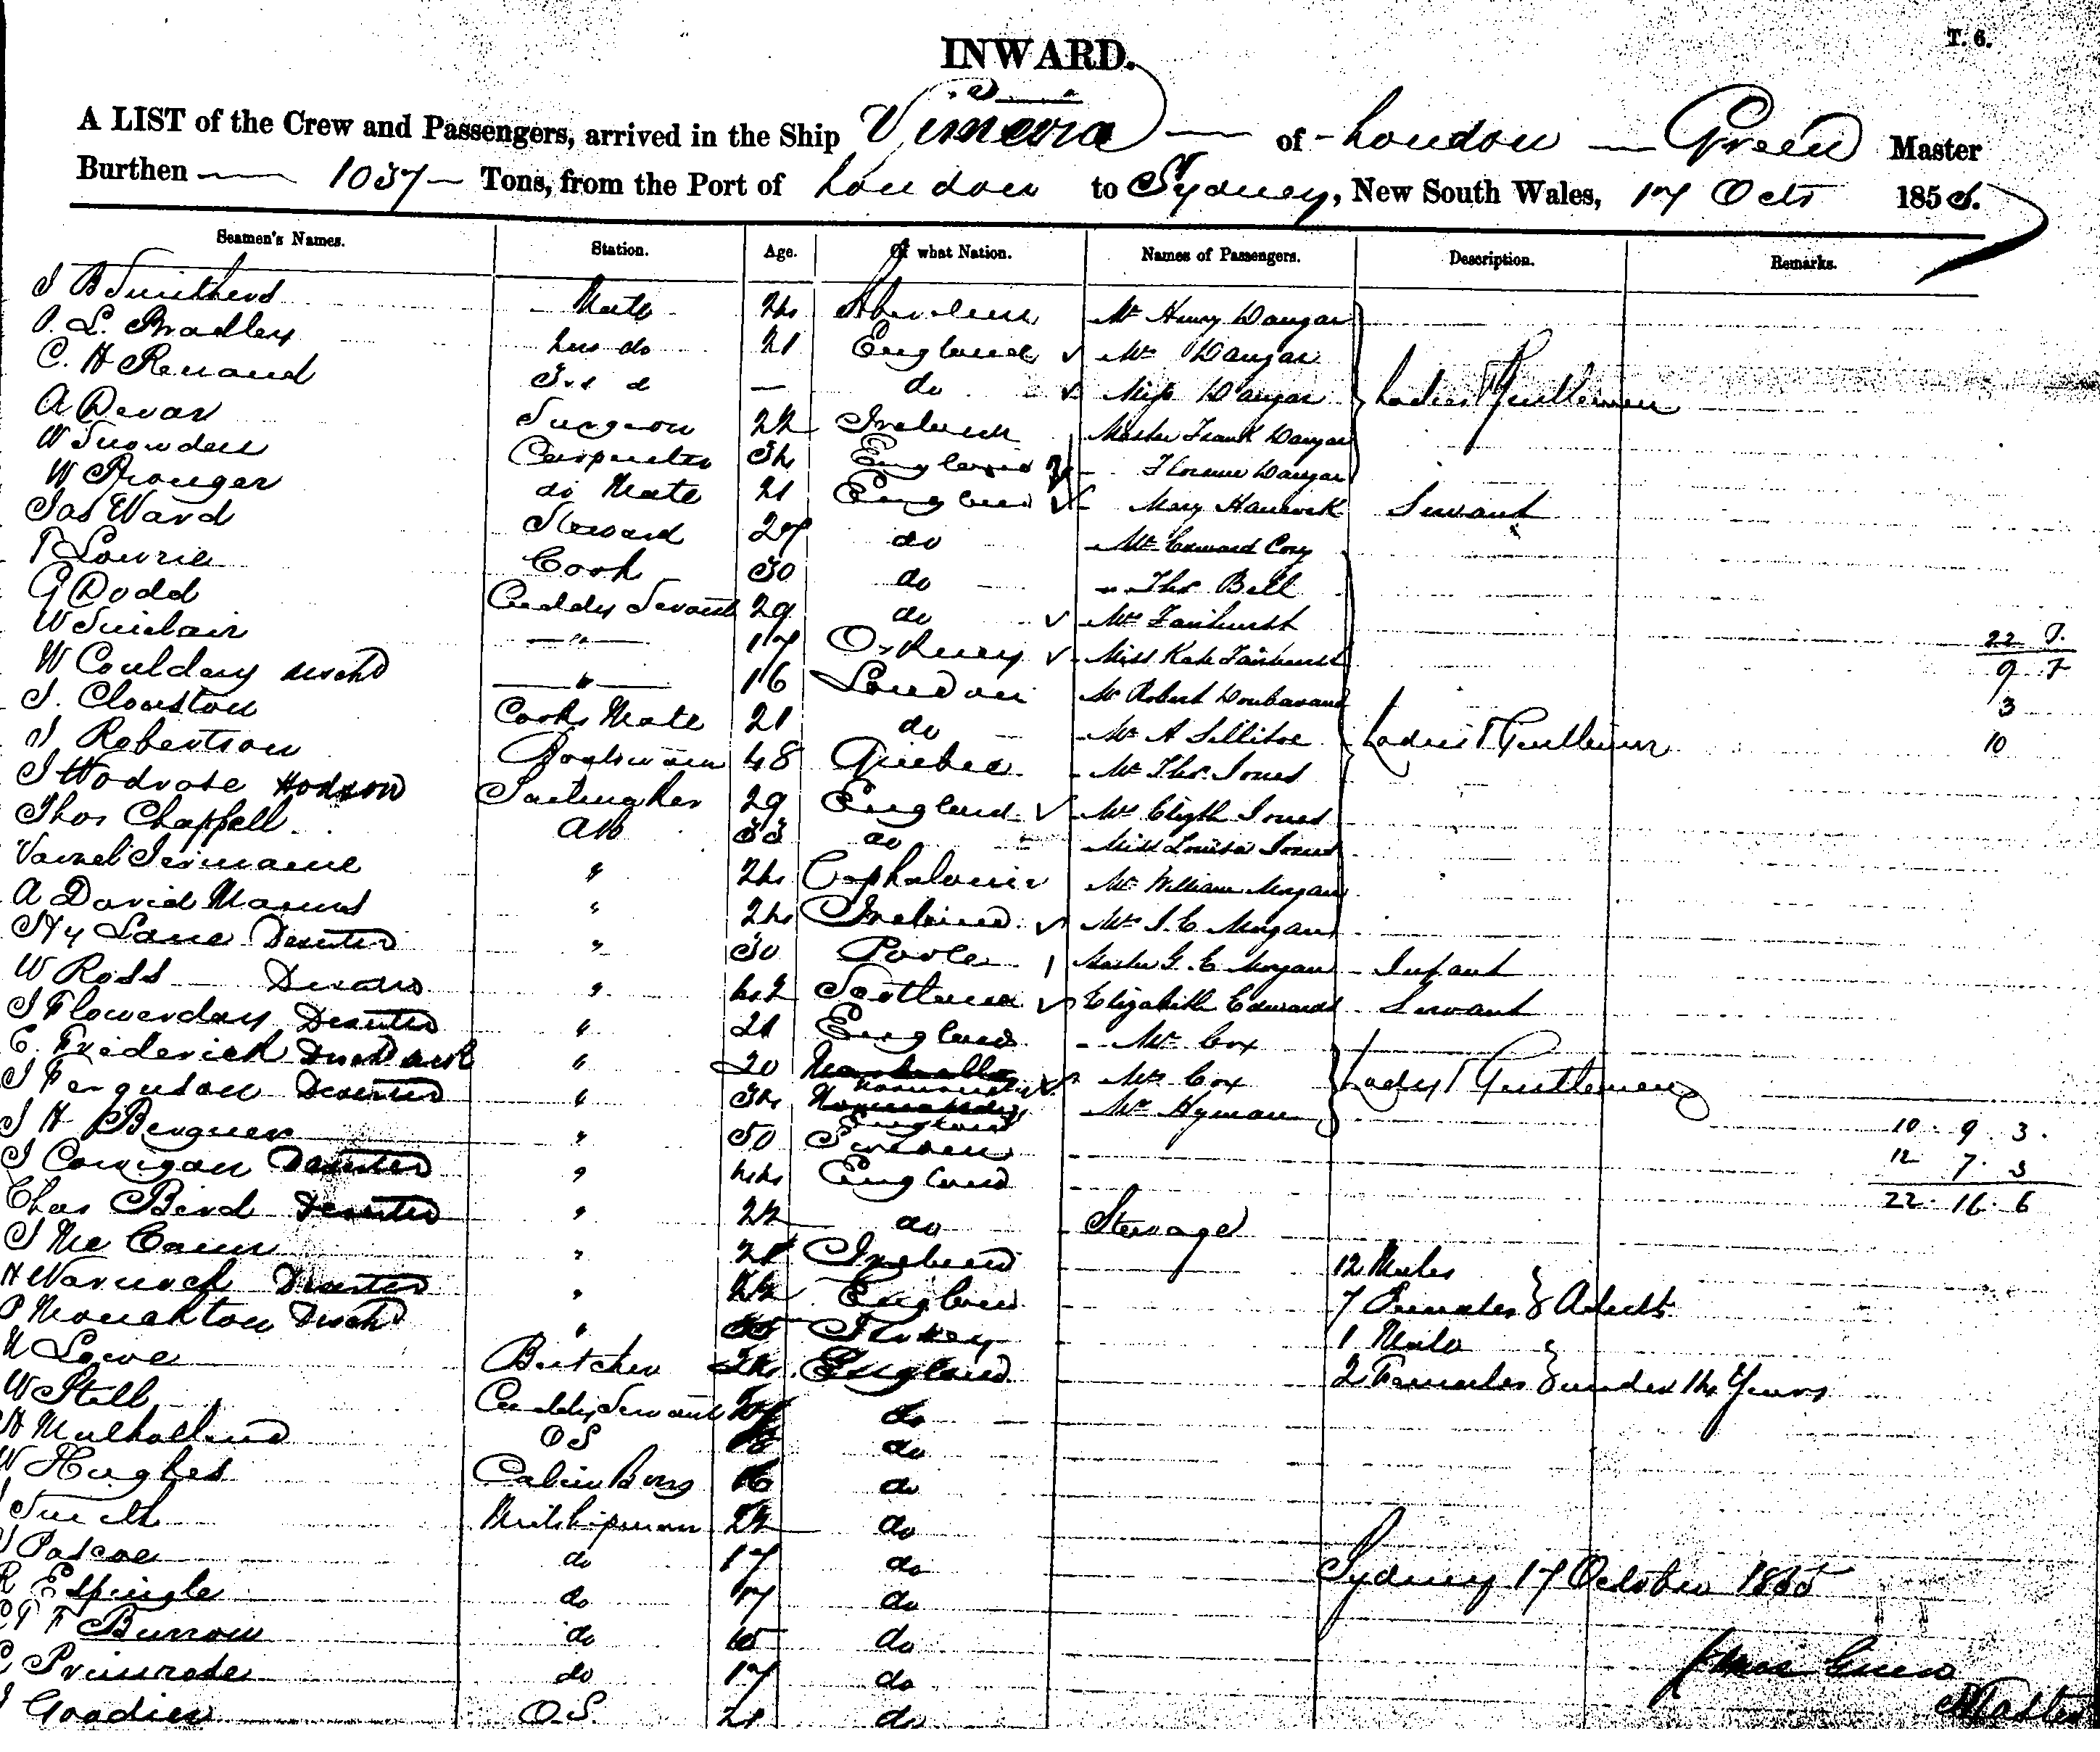 T. 6.
INWARD.
A LIST of the Crew and Passengers, arrived in the Ship Vimeira — of London — Green Master
Burthen — 1037 — Tons, from the Port of London to Sydney, New South Wales, 17 Octr 1855.
Seamen's Names. Station. Age. Of what Nation. Names of Passengers. Description. Remarks.
J B Smithers Mate 24 Aberdeen Mr Henry Dangar
P. L. Bradley 2nd do 21 England Mrs Dangar
C. H Renaud 3rd do — do Miss Dangar Ladies & Gentlemen
A Devar Surgeon 22 Ireland Master Frank Dangar
W Snowden Carpenter 34 England Florence Dangar
W Pronger do Mate 21 England Mary Hancock Servant
Jas Ward Steward 27 do Mr Edward Cory
T Lowrie Cook 30 do " Thos Bell
G Dodd Cuddy Servant 29 do Mrs Fairhurst
W Sinclair " 17 Orkney Miss Kate Fairhurst
22
9 7
W Couldary " 16 London Mr Robert
3
J. Clouston Cooks Mate 21 do Mr A Sillitoe Ladies & Gentlemen
10
J Robertson Boatswain 48 Quebec Mr Thos Jones
J Woodrose Hodson Sailmaker 29 England Mrs Elizth Jones
Thos Chappell AB 33 do Miss Louisa Jones
Jermaine " 24 Cephalonia Mr William Morgan
A David " 24 Ireland Mrs J. C Morgan
Hy Lane Deserted " 30 Poole Master G. E Morgan Infant
W Ross " 42 Scotland Elizabeth Edwards Servant
J Flowerday Deserted " 21 England Mr Cox
E. Frederick " 20 Mrs Cox Lady & Gentlemen
J Ferguson Deserted " 34 Mr Hyman
J H Berguer " 50 Sweden
10 9 3
J Corrigan Deserted " 44 England
12 7 3
Chas Bird Deserted " 22 do Steerage
22 16 6
J McCann " 21 Ireland 12 Males
H Warnock Deserted " 22 England 7 Females } Adults
P Monckton Dischd " 35 Turkey 1 Male
Lowe Butcher 24 England 2 Females } under 14 Years
W Still Cuddy Servant do
H Mulholland OS 18 do
W Hughes Cabin Boy 16 do
Smith Midshipman 22 do
J Pascoe do 17 do Sydney 17 October 1855
R E Spingle do 17 do
F Burrow do 15 do
Primrose do 17 do James Green
J Goodier O.S. 21 do Master